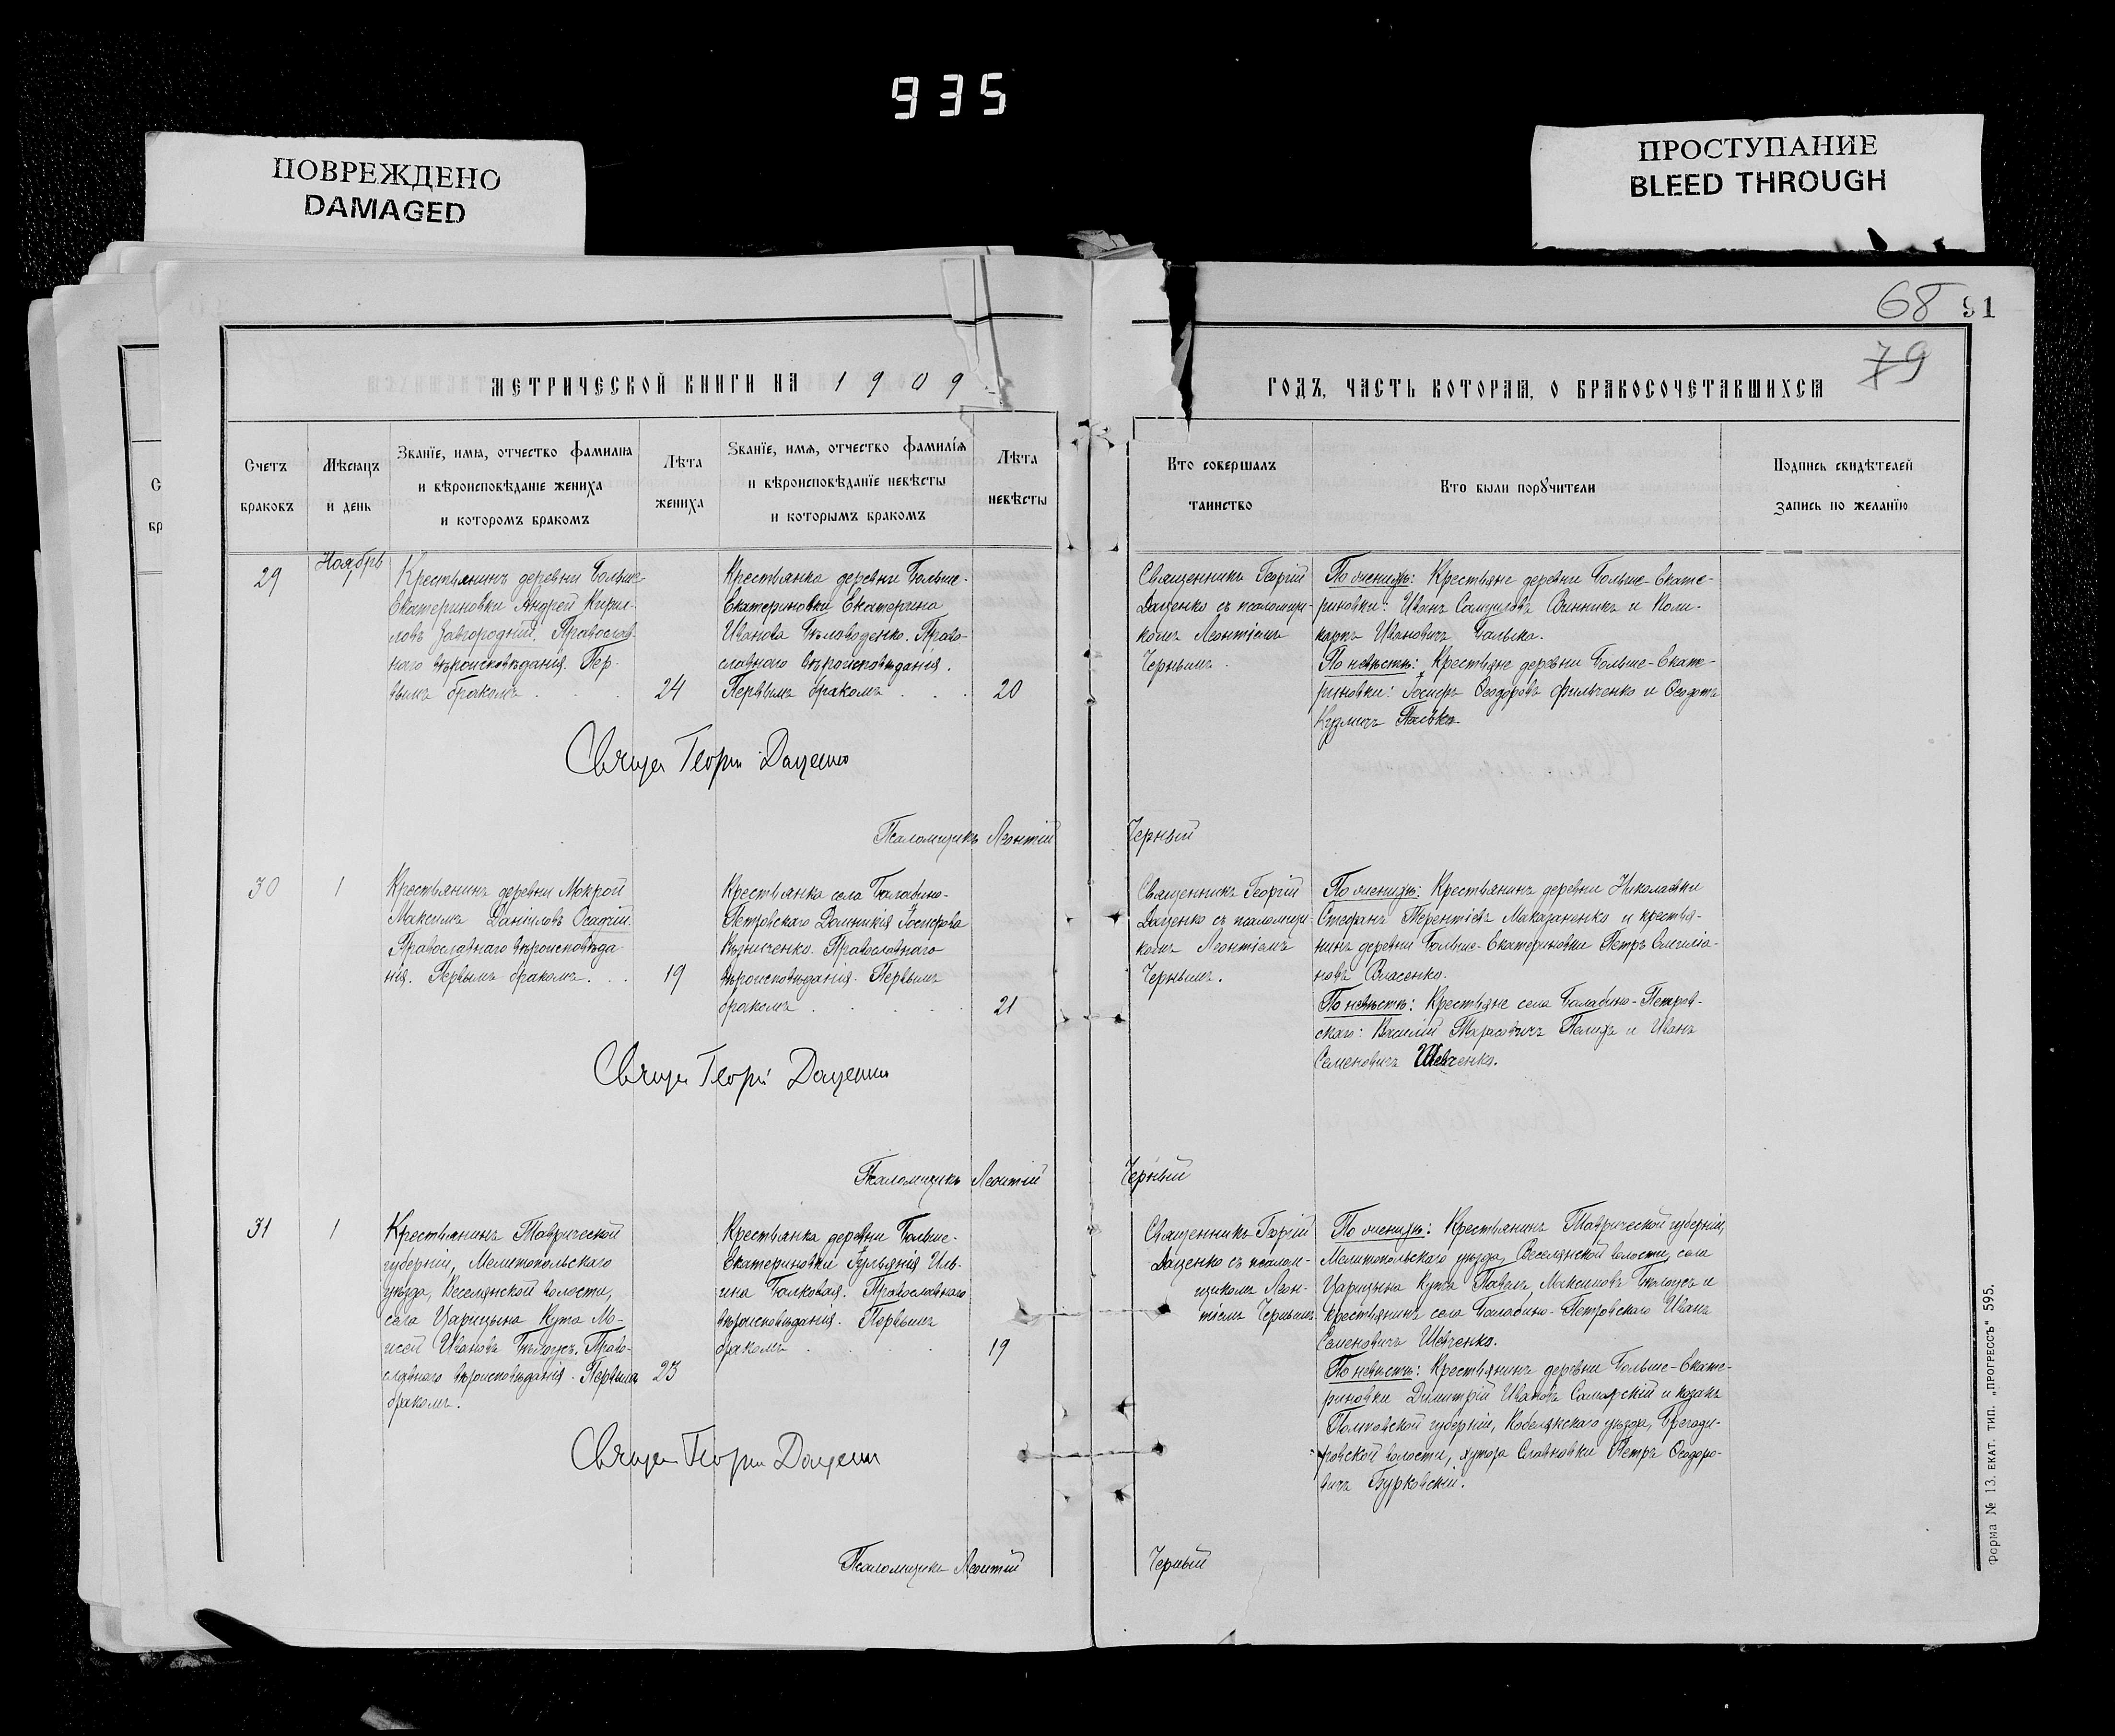 935
ПОВРЕЖДЕНО
DAMAGED
ПРОСТУПАНИЕ
BLEED THROUGH
68 91
79
МЕТРИЧЕСКОЙ КНИГИ НА 1909
ГОДЪ, ЧАСТЬ КОТОРАѦ, О БРАКОСОЧЕТАВШИХСѦ
Счетъ браковъ
Мѣсѧцъ и день
Званїе, имѧ, отчество фамилїѧ
и вѣроисповѣданїе жениха
и которомъ бракомъ
Лѣта жениха
Званїе, имѧ, отчество фамилїѧ
и вѣроисповѣданїе невѣсты
и которымъ бракомъ
Лѣта невѣсты
Кто совершалъ таинство
Кто были порꙋчители
Подпись свидѣтелей
запись по желанїю
29
Ноябрь
1
Крестьянинъ деревни Больше-
Екатериновки Андрей Кирил-
ловъ Завгородній. Православ-
наго вѣроисповѣданія. Пер-
вымъ бракомъ . . .
24
Крестьянка деревни Больше-
Екатериновки Екатерина
Иванова Бѣловоденко. Право-
славнаго вѣроисповѣданія.
Первымъ бракомъ . . .
20
Священникъ Георгій
Даценко съ псаломщи-
комъ Леонтіемъ
Чернымъ.
По женихѣ: Крестьяне деревни Больше-Екате-
риновки: Иванъ Самуиловъ Винникъ и Поли-
карпъ Ивановичъ Балыка.
По невѣстѣ: Крестьяне деревни Больше-Екате-
риновки: Іосифъ Ѳеодоровъ Фильченко и Ѳеодотъ
Кузмичъ
Священ Георгій Даценко
Псаломщикъ Леонтій Черный
30
1
Крестьянинъ деревни Мокрой
Максимъ Даніиловъ Осадчій
Православнаго вѣроисповѣда
нія. Первымъ бракомъ. . .
19
Крестьянка села Балабино-
Петровскаго Домникія Іосифова
Кузниченко. Православнаго
вѣроисповѣданія. Первымъ
бракомъ . . . . .
21
Священникъ Георгій
Даценко съ псаломщи-
комъ Леонтіемъ
Чернымъ.
По женихѣ: Крестьянинъ деревни Николаевки
Стефанъ Терентіевъ Макаганенко и крестья-
нинъ деревни Больше-Екатериновки Петръ Емиліа-
новъ Власенко.
По невѣстѣ: Крестьяне села Балабино-Петров-
скаго: Василій Тарасовичъ Пелихъ и Иванъ
Семеновичъ Шевченко.
Священ Георгій Даценко
Псаломщикъ Леонтій Черный
31
1
Крестьянинъ Таврической
губерніи, Мелитопольскаго
уѣзда, Веселянской волости,
села Царицына Кута Мо-
исей Ивановъ Бѣлоусъ. Право-
славнаго вѣроисповѣданія. Первымъ
бракомъ.
23
Крестьянка деревни Больше-
Екатериновки Іульянія Иль-
ина Балковая. Православнаго
вѣроисповѣданія. Первымъ
бракомъ . . . .
19
Священникъ Георгій
Даценко съ псалом-
щикомъ Леон-
тіемъ Чернымъ
По женихѣ: Крестьянинъ Таврической губерніи,
Мелитопольскаго уѣзда, Веселянской волости, села
Царицына Кута Павелъ Максимовъ Бѣлоусъ и
крестьянинъ села Балабино-Петровскаго Иванъ
Семеновичъ Шевченко.
По невѣстѣ: Крестьянинъ деревни Больше-Екате-
риновки Димитрій Ивановъ Самарскій и козакъ
Полтавской губерніи, Кобелякскаго уѣзда, Брегади-
ровской волости, хутора Славновки Петръ Ѳеодоро-
вичъ Бурковскій.
Священ Георгій Даценко
Псаломщикъ Леонтій Черный
Форма № 13. ЕКАТ. ТИП. „ПРОГРЕССЪ“ 595.